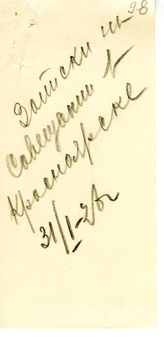 98
Записки к
Совещанию в
Красноярске
31/I-28г